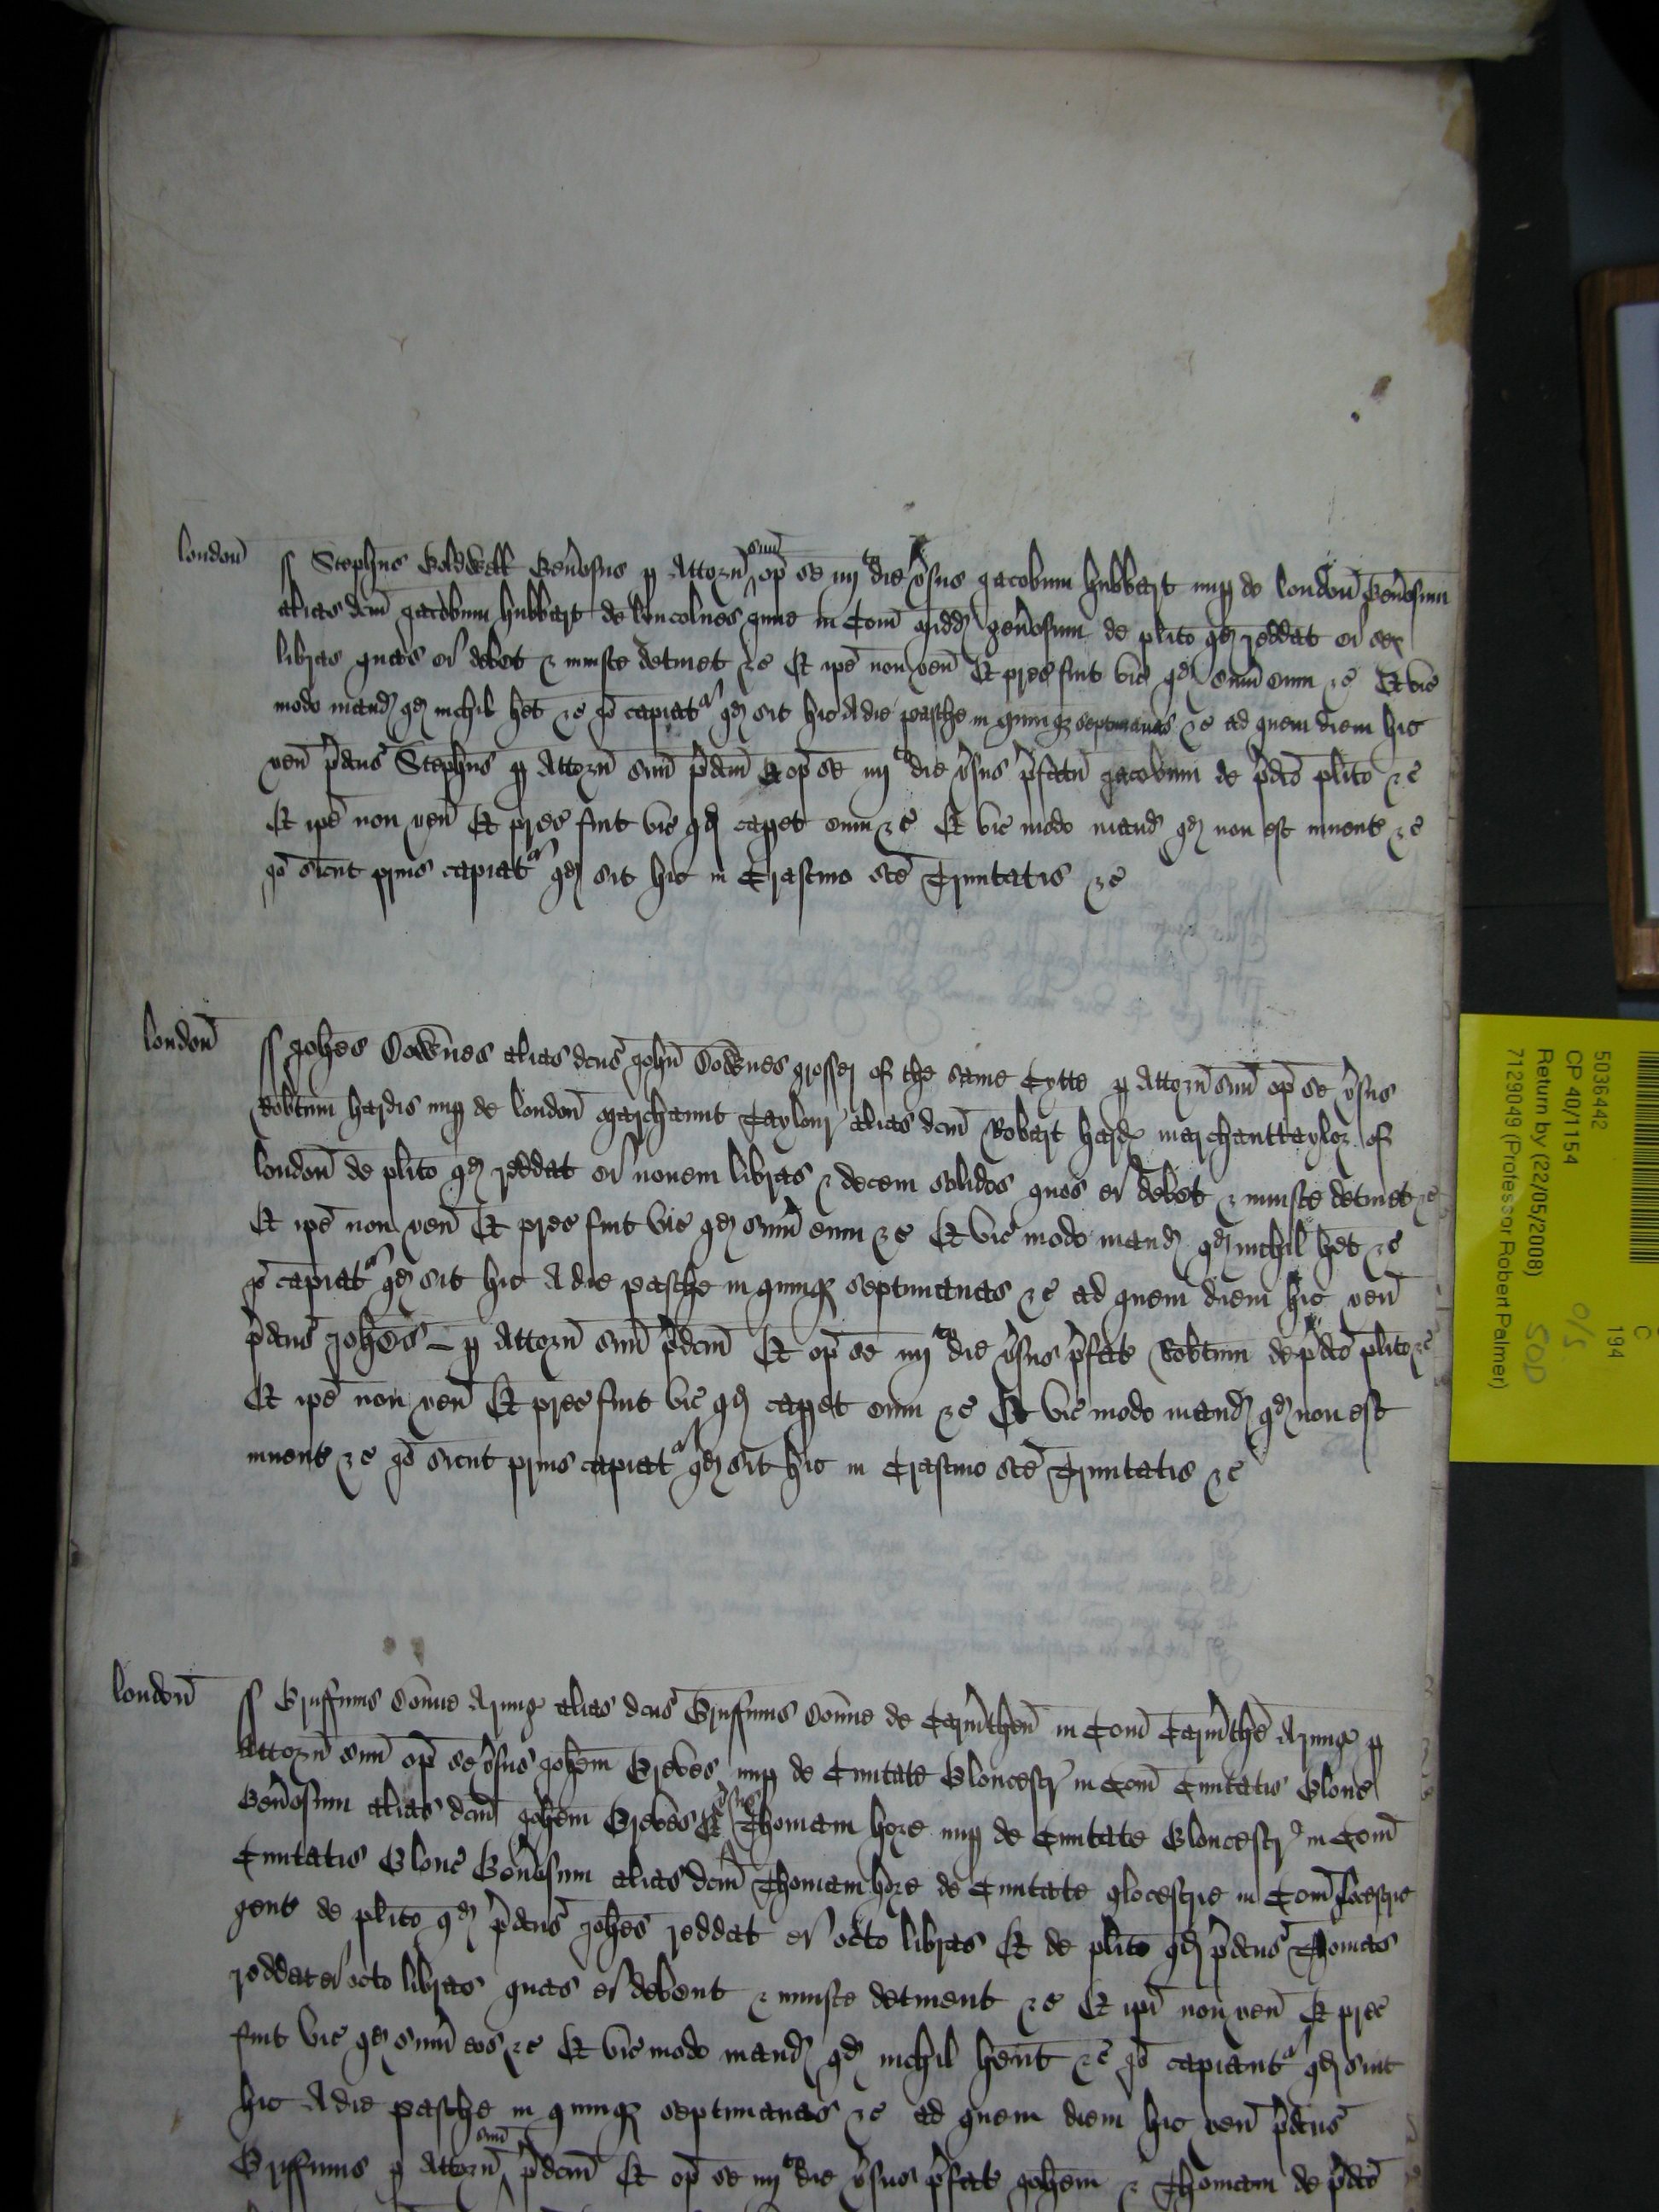 londoñ
ss Stephus Boldwell Genosus p Attorñ suũ op se iiij to die vsus Jacobum hubbart nup de londoñ Genosum
alias dcm Jacobum hubbart de lyncolnes Inne in Com Midd genosum de plito qd reddat ei sex
libras quas ei debet & iniuste detinet &c Et ipe non ven Et prec fuit vic qd sum eum &c Et vic
modo mand qd nichil het &c Io capiat r qd sit hic A die pasche in quinq septimanas &c ad quem diem hic
ven pdcus Stephus p Attorñ suũ pdcm Et op se iiij to die vsus pfatu Jacobum de pdco plito &c
Et ipe non ven Et prec fuit vic qd capet eum &c Et vic modo mand qd non est inuent &c
Io sicut prius capiat r qd sit hic in Crastino sce Trinitatis &c
londoñ
ss Johes Downes alias dcus John Downes grosser of the same Cytte p Attorñ suũ op se vsus
Robtum hardis nup de londoñ Marchaunt Taylour alias dcm Robert hard marchanttaylor of
londoñ de plito qd reddat ei nouem libras & decem solidos quos ei debet & iniuste detinet &c
Et ipe non ven Et prec fuit vic qd sum eum &c Et vic modo mand qd nichil het &c
Io capiat r qd sit hic A die pasche in quinq septimanas &c ad quem diem hic ven
pdcus Johes – p Attorñ suũ pdcm Et op se iiij to die vsus pfat Robtum de pdco plito &c
Et ipe non ven Et prec fuit vic qd capet eum &c Et vic modo mand qd non est
inuent &c Io sicut prius capiat r qd sit hic in Crastino sce Trinitatis &c
londoñ
ss Gruffinus Donne Armig alias dcus Gruffinus Donne de Carmthen in Com Carmthen Armig p
Attorñ suũ op se vsus Johem Greves nup de Ciuitate Gloucestr in Com Ciuitatis Glouc
Genosum alias dcm Johem Greves Et vsus Thomam hore nup de Ciuitate Gloucestr in Com
Ciuitatis Glouc Genosum alias dcm Thomam hore de Ciuitate glocestrie in Com
gent de plito qd pdcus Johes reddat ei octo libras Et de plito qd pdcus Thomas
reddat ei octo libras quas ei debent & iniuste detinent &c Et ipi non ven Et prec
fuit vic qd sum eos &c Et vic modo mand qd nichil hent &c Io capiant r qd sint
hic A die pasche in quinq septimanas &c ad quem diem hic ven pdcus
Gruffinus p Attorñ suũ pdcm Et op se iiij to die vsus pfat Johem & Thomam de pdco
5036442
CP 40/1154
Return by (22/05/2008)
7129049 (Professor Robert Palmer)
C
194
O/S
SOD